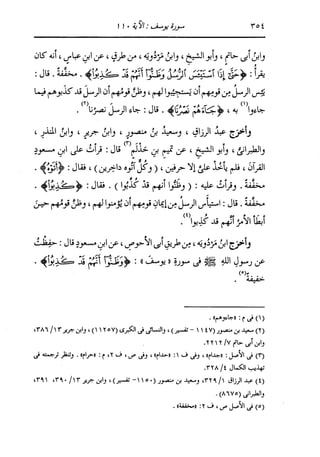 ٣٥٤ سورة يوسف: الآية ١١٠
وابنُ أبى حاتمٍ، وأبو الشيخِ، وابنُ مَرْدُويَه، من طرقٍ، عن ابنِ عباسٍ، أنه كان
يقرأُ: ﴿حَتَّىٰٓ إِذَا ٱسْتَيْـَٔسَ ٱلرُّسُلُ وَظَنُّوٓا۟ أَنَّهُمْ قَدْ كُذِبُوا۟﴾. مخفَّفةً. قال:
يَئِس الرسلُ مِن قومِهم أن يَستجيبوا لهم، وظنَّ قومُهم أن الرسلَ قد كذَبوهم فيما
جاءوا(١) به، ﴿جَآءَهُمْ نَصْرُنَا﴾. قال: جاء الرسلَ نصرُنا(٢).
وأخرَج عبدُ الرزاقِ، وسعيدُ بنُ منصورٍ، وابنُ جريرٍ، وابنُ المنذرِ،
والطبرانىُّ، وأبو الشيخِ، عن تميمِ بنِ حَذْلَمٍ(٣) قال: قرأتُ على ابنِ مسعودٍ
القرآنَ، فلم يأخُذْ علىَّ إلا حرفين، (وكلٌّ آتُوه داخِرين)، فقال: ﴿أَتَوْهُ﴾.
مخفَّفةً. وقرأتُ عليه: (وظَنُّوا أنهم قد كُذِّبُوا). فقال: ﴿كُذِبُوا۟﴾.
مخففةً. قال: استيأَس الرسلُ مِن إيمانِ قومِهم أن يُؤمنوا لهم، وظنَّ قومُهم حينَ
أبطأَ الأمرُ أنَّهم قد كُذِبوا(٤).
وأخرَج ابنُ مَرْدُويَه، من طريقِ أبى الأحوصِ، عن ابنِ مسعودٍ قال: حفِظْتُ
عن رسولِ اللهِ ﷺ فى سورةِ «يوسفَ»: ﴿وَظَنُّوٓا۟ أَنَّهُمْ قَدْ كُذِبُوا۟﴾.
خفيفةً(٥).
(١) فى م: «جاءوهم».
(٢) سعيد بن منصور (١١٤٧ - تفسير)، والنسائى فى الكبرى (١١٢٥٧)، وابن جرير ١٣/ ٣٨٦،
وابن أبى حاتم ٧/ ٢٢١٢.
(٣) فى الأصل: «جدام»، وفى ف ١: «حدام»، وفى ص، ف ٢، م: «حرام». وتنظر ترجمته فى
تهذيب الكمال ٤/ ٣٢٨.
(٤) عبد الرزاق ١/ ٣٢٩، وسعيد بن منصور (١١٥٠ - تفسير)، وابن جرير ١٣/ ٣٩٠، ٣٩١،
والطبرانى (٨٦٧٥).
(٥) فى الأصل، ص، ف ٢: «مخففة».